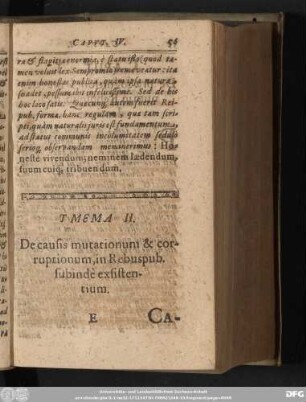 CAPVT. IV. 56
ra & flagitia enormia, è statu isto (quod ta-
men voluit lex Sempronia) removeatur: ita
enim honestas publica, quam ipsa natura
suadet, pessum ibit infelicissime. Sed de his
hoc loco satis. Quæcunq; autem fuerit Rei-
pub. forma, hanc regulam, qua tam scri-
pti quàm naturalis juris est fundamentum,
ad status communis incolumitatem sedulò
observandam meminerimus: Ho-
nestè vivendum, neminem lædendum,
suum cuiq; tribuendum.
TMEMA II.
De causis mutationum & cor-
ruptionum, in Rebuspub.
subindè existen-
tium.
E CA-